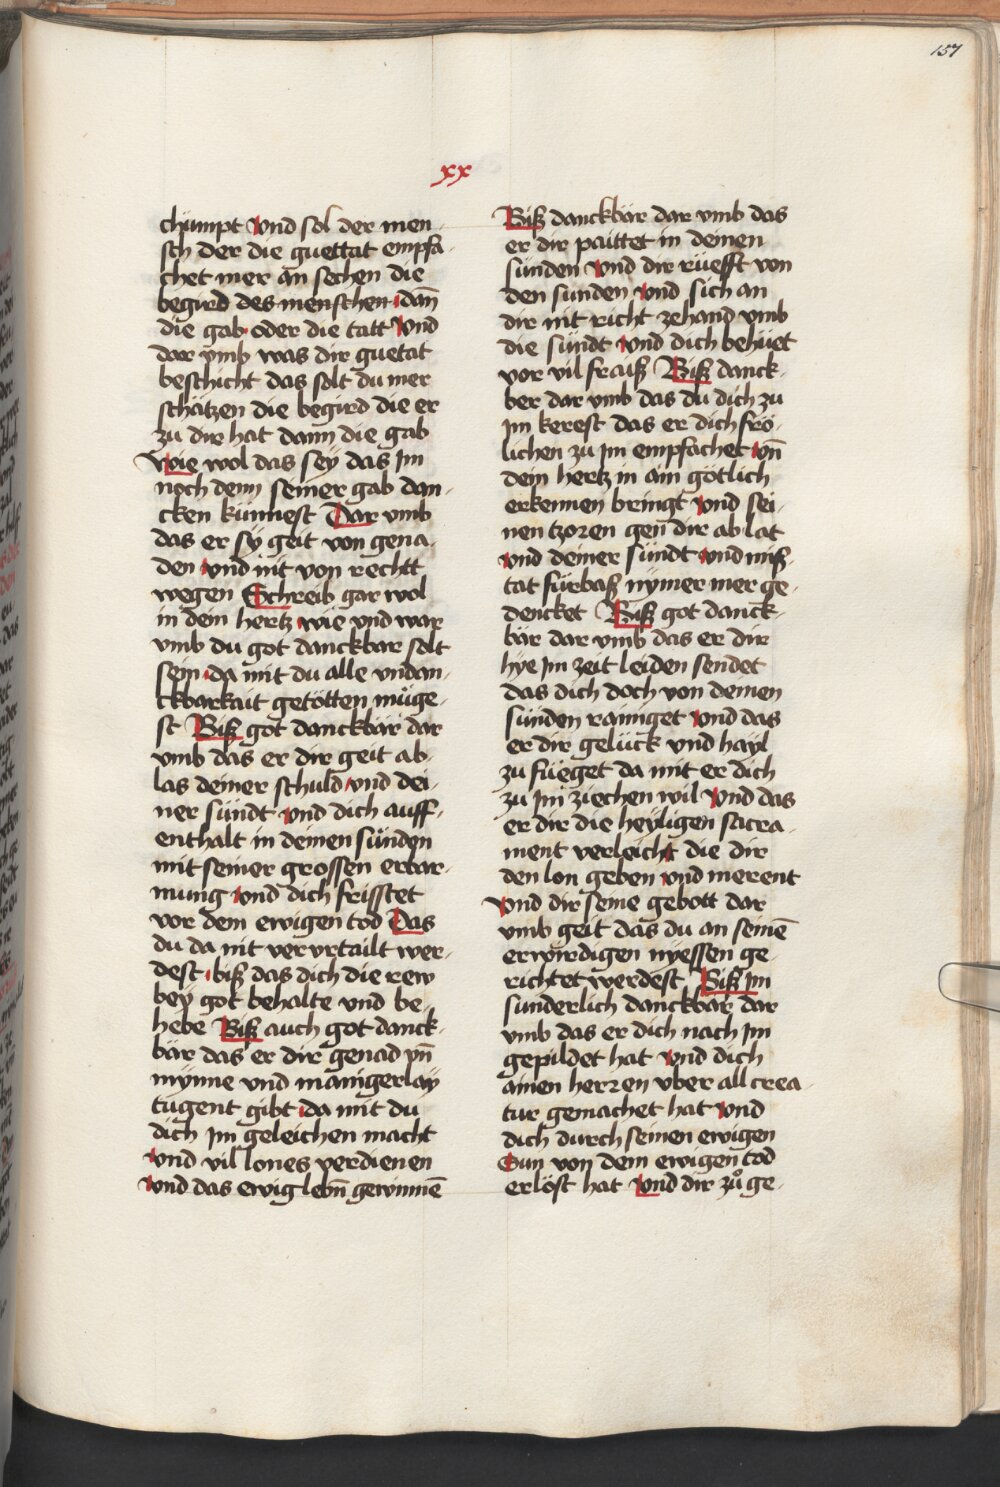 157
xx
chümpt Vnd sol der men
sch der die guettat empfa-
chet mer an sechen die
begird des menschen dañ
die gab oder die tatt Vnd
dar vmb was dir guetat
beschicht das solt du mer
schätzen die begird die er
zu dir hat dann die gab
Wie wol das sey das Im
noch denn seiner gab dan-
cken künnest Dar vmb
das er sy geit von gena-
den vnd nit von rechtt
wegen Schreib gar wol
in dein hertz wie vnd war
vmb du got danckbar solt
sein da mit du alle vndan-
ckbarkait getötten müge-
st Biß got danckbär dar
vmb das er dir geit ab-
las deiner schuld vnd dei-
ner sündt Vnd dich auff-
enthalt in deinen sünden
mit seiner grossen erbar-
mung Vnd dich fristtet
vor dem ewigen tod Das
du da nit vervrtailt wer-
dest biß das dich die rew
bey got behalte vnd be-
hebe Biß auch got danck-
bär das er dir genad vñ
mynne vnd manigerlaÿ
tugent gibt da mit du
dich Im geleichen macht
Vnd vil lones verdienen
Vnd das ewig lebñ gewinnē
Biß danckbär dar vmb das
er dir paittet in deinen
sünden Vnd dir rüefft von
den sunden Vnd sich an
dir nit richt zehand vmb
die sündt Vnd dich behüet
vor vil fraiß Biß danck-
ber dar vmb das du dich zu
Im kerest das er dich frö-
lichen zu Im empfachet vñ
dein hertz in ain götlich
erkennen bringt Vnd sei-
nen tzoren gen dir ab lat
Vnd deiner sündt Vnd miß-
tat fürbaß nymer mer ge-
dencket Biß got danck-
bär dar vmb das er dir
hye Im zeit leiden sendet
das dich doch von deinen
sünden rainiget Vnd das
er dir gelück vnd hayl
zu füeget da mit er dich
zu Im ziechen wil Vnd das
er dir die heyligen sacra-
ment verleicht die dir
den lon geben vnd merent
Vnd dir seine gebott dar
vmb geit das du an seinē
erwirdigen nyessen ge-
richtet werdest Biß Im
sunderlich danckbär dar
vmb das er dich nach Im
gepildet hat Vnd dich
ainen herren vber all crea-
tur gemachet hat Vnd
dich durch seinen ewigen
Sun von dem ewigen tod
erlöst hat Vnd dir zůge-